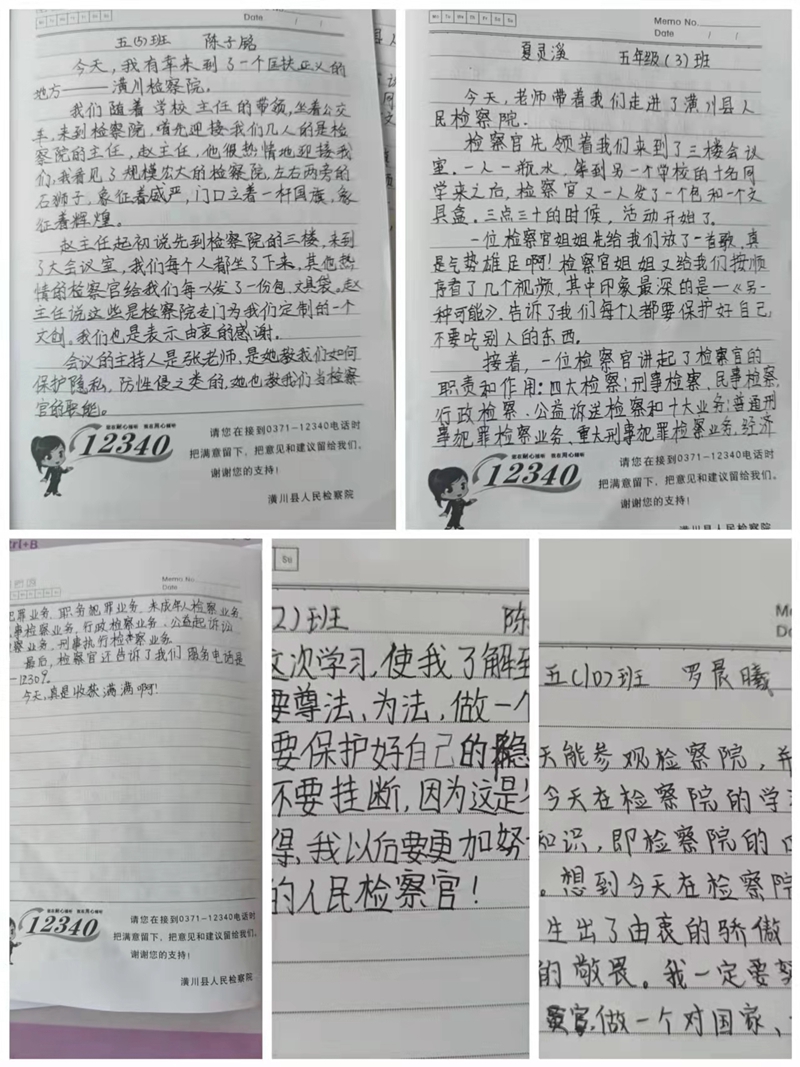 Memo No.
Date / /
五(5)班 陈子铭
今天,我有幸来到了一个匡扶正义的
地方——潢川检察院。
我们随着学校主任的带领,坐着公交
车,来到检察院,首先迎接我们几人的是检
察院的主任,赵主任,他很热情地迎接我
们,我看见了规模宏大的检察院,左右两旁的
石狮子,象征着威严,门口立着一杆国旗,象
征着辉煌。
赵主任起初说先到检察院的三楼,来到
了大会议室,我们每个人都坐了下来,其他热
情的检察官给我们每一人发了一份包、文具袋。赵
主任说这些是检察院专门为我们定制的一个
文创。我们也是表示由衷的感谢。
会议的主持人是张老师,是她教我们如何
保护隐私,防性侵之类的,她也教我们当检察
官的职能。
我在耐心倾听 我在用心倾听
12340
请您在接到0371-12340电话时
把满意留下,把意见和建议留给我们。
谢谢您的支持!
潢川县人民检察院
Mo Tu We Th Fr Sa Su
Memo No.
Date / /
夏灵溪 五年级(3)班
今天,老师带着我们走进了潢川县人
民检察院.
检察官先领着我们来到了三楼会议
室.一人一瓶水,等到另一个学校的十名同
学来之后,检察官又一人发了个包和一个文
具盒.三点三十的时候,活动开始了.
一位检察官姐姐先给我们放了一首歌,真
是气势雄足啊!检察官姐姐又给我们按顺
序看了几个视频,其中印象最深的是一《另一
种可能》.告诉了我们每个人都要保护好自己,
不要吃别人的东西.
接着,一位检察官讲起了检察官的
职责和作用:四大检察:刑事检察、民事检察、
行政检察、公益诉送检察和十大业务:普通刑
事犯罪检察业务、重大刑事犯罪检察业务、经济
我在耐心倾听 我在用心倾听
12340
请您在接到0371-12340电话时
把满意留下,把意见和建议留给我们。
谢谢您的支持!
潢川县人民检察院
trl+B
Memo No.
Date
犯罪业务、职务犯罪业务、未成年人检察业务、
事检察业务,行政检察业务、公益起诉讼
察业务、刑事执行检察业务.
最后,检察官还告诉了我们服务电话是
—12309.
今天,真是收获满满啊!
我在耐心倾听 我在用心倾听
12340
请您在接到0371-12340电话时
把满意留下,把意见和建议留给我们。
谢谢您的支持!
潢川县人民检察院
Su
2)班 陈
这次学习,使我了解到
要尊法、为法,做一个
要保护好自己的隐
不要挂断,因为这是
得,我以后要更加努
的人民检察官!
Me
Da
五(10)班 罗晨曦
天能参观检察院,并
今天在检察院的学
知识,即检察院的
。想到今天在检察院
生出了由衷的骄傲
的敬畏。我一定要努
官,做一个对国家、